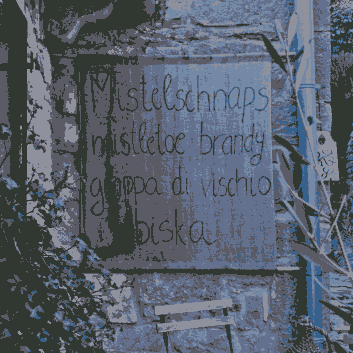 Mistelschnaps
mistletoe brandy
grappa di vischio
biska